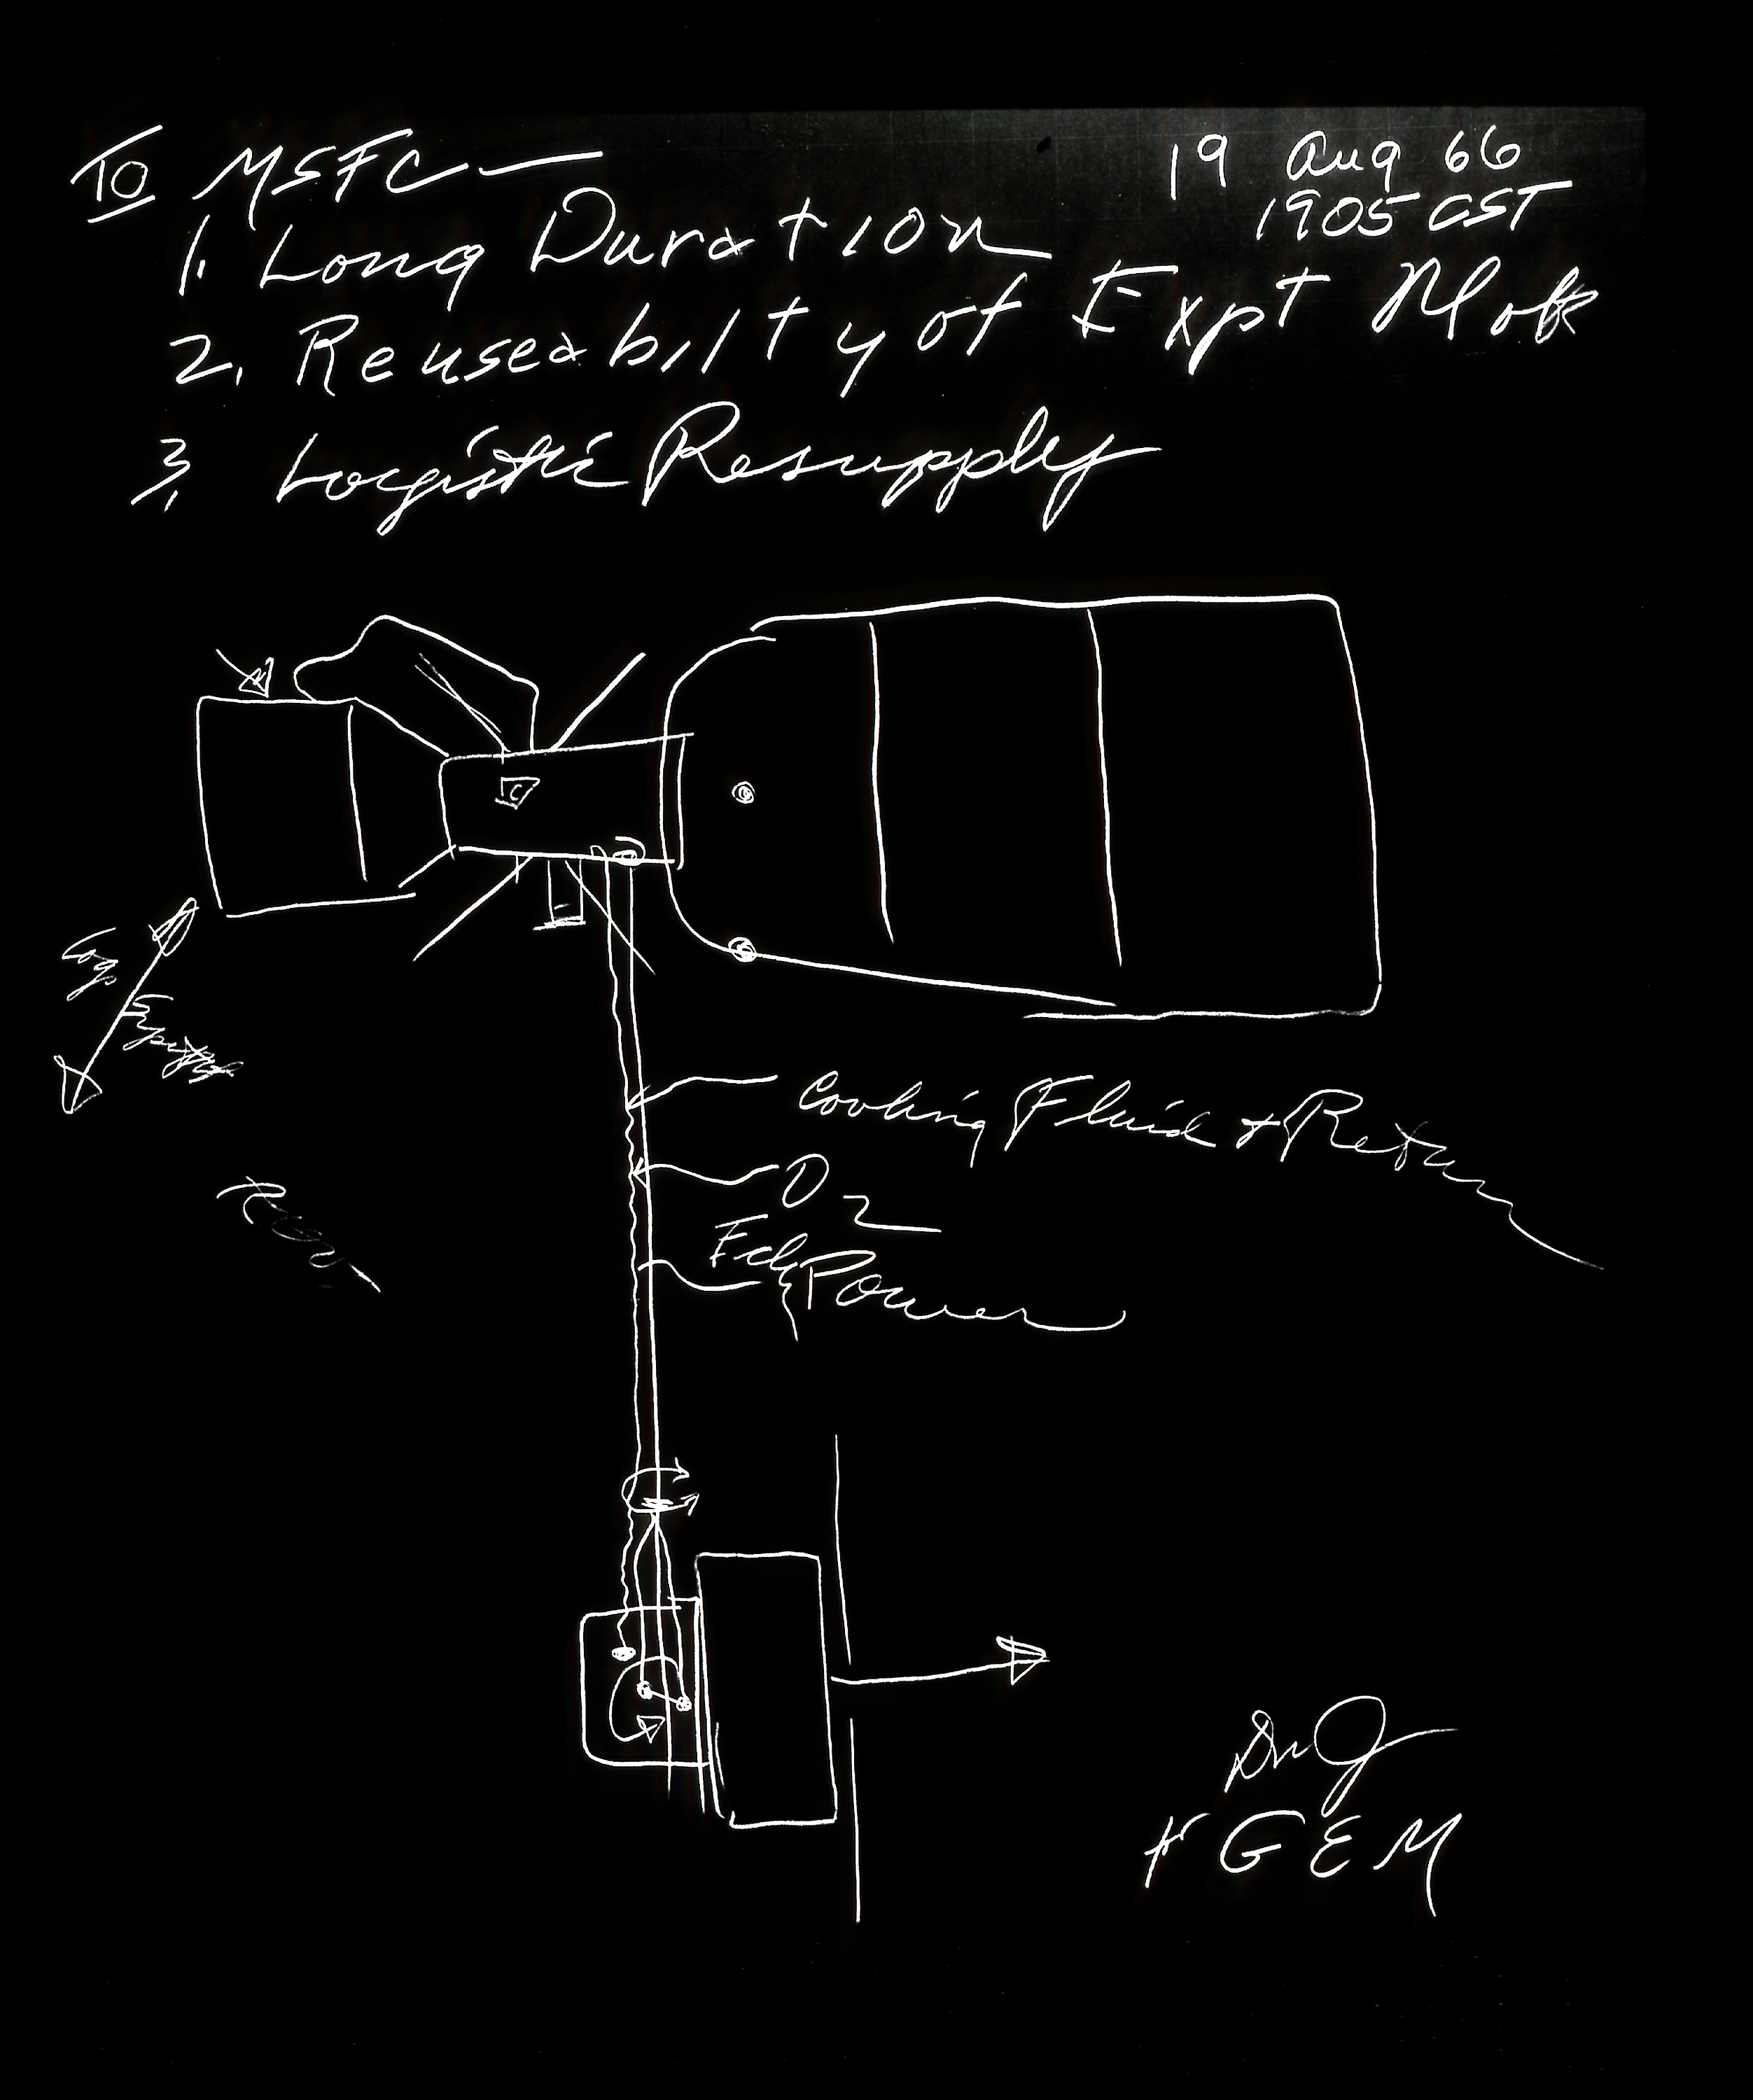 TO MSFC —
19 Aug 66
1905 CST
1. Long Duration
2. Reuseabilty of Expt Mod
3, Logistic Resupply
Cooling Fluid & Return
O2
Power
GEM